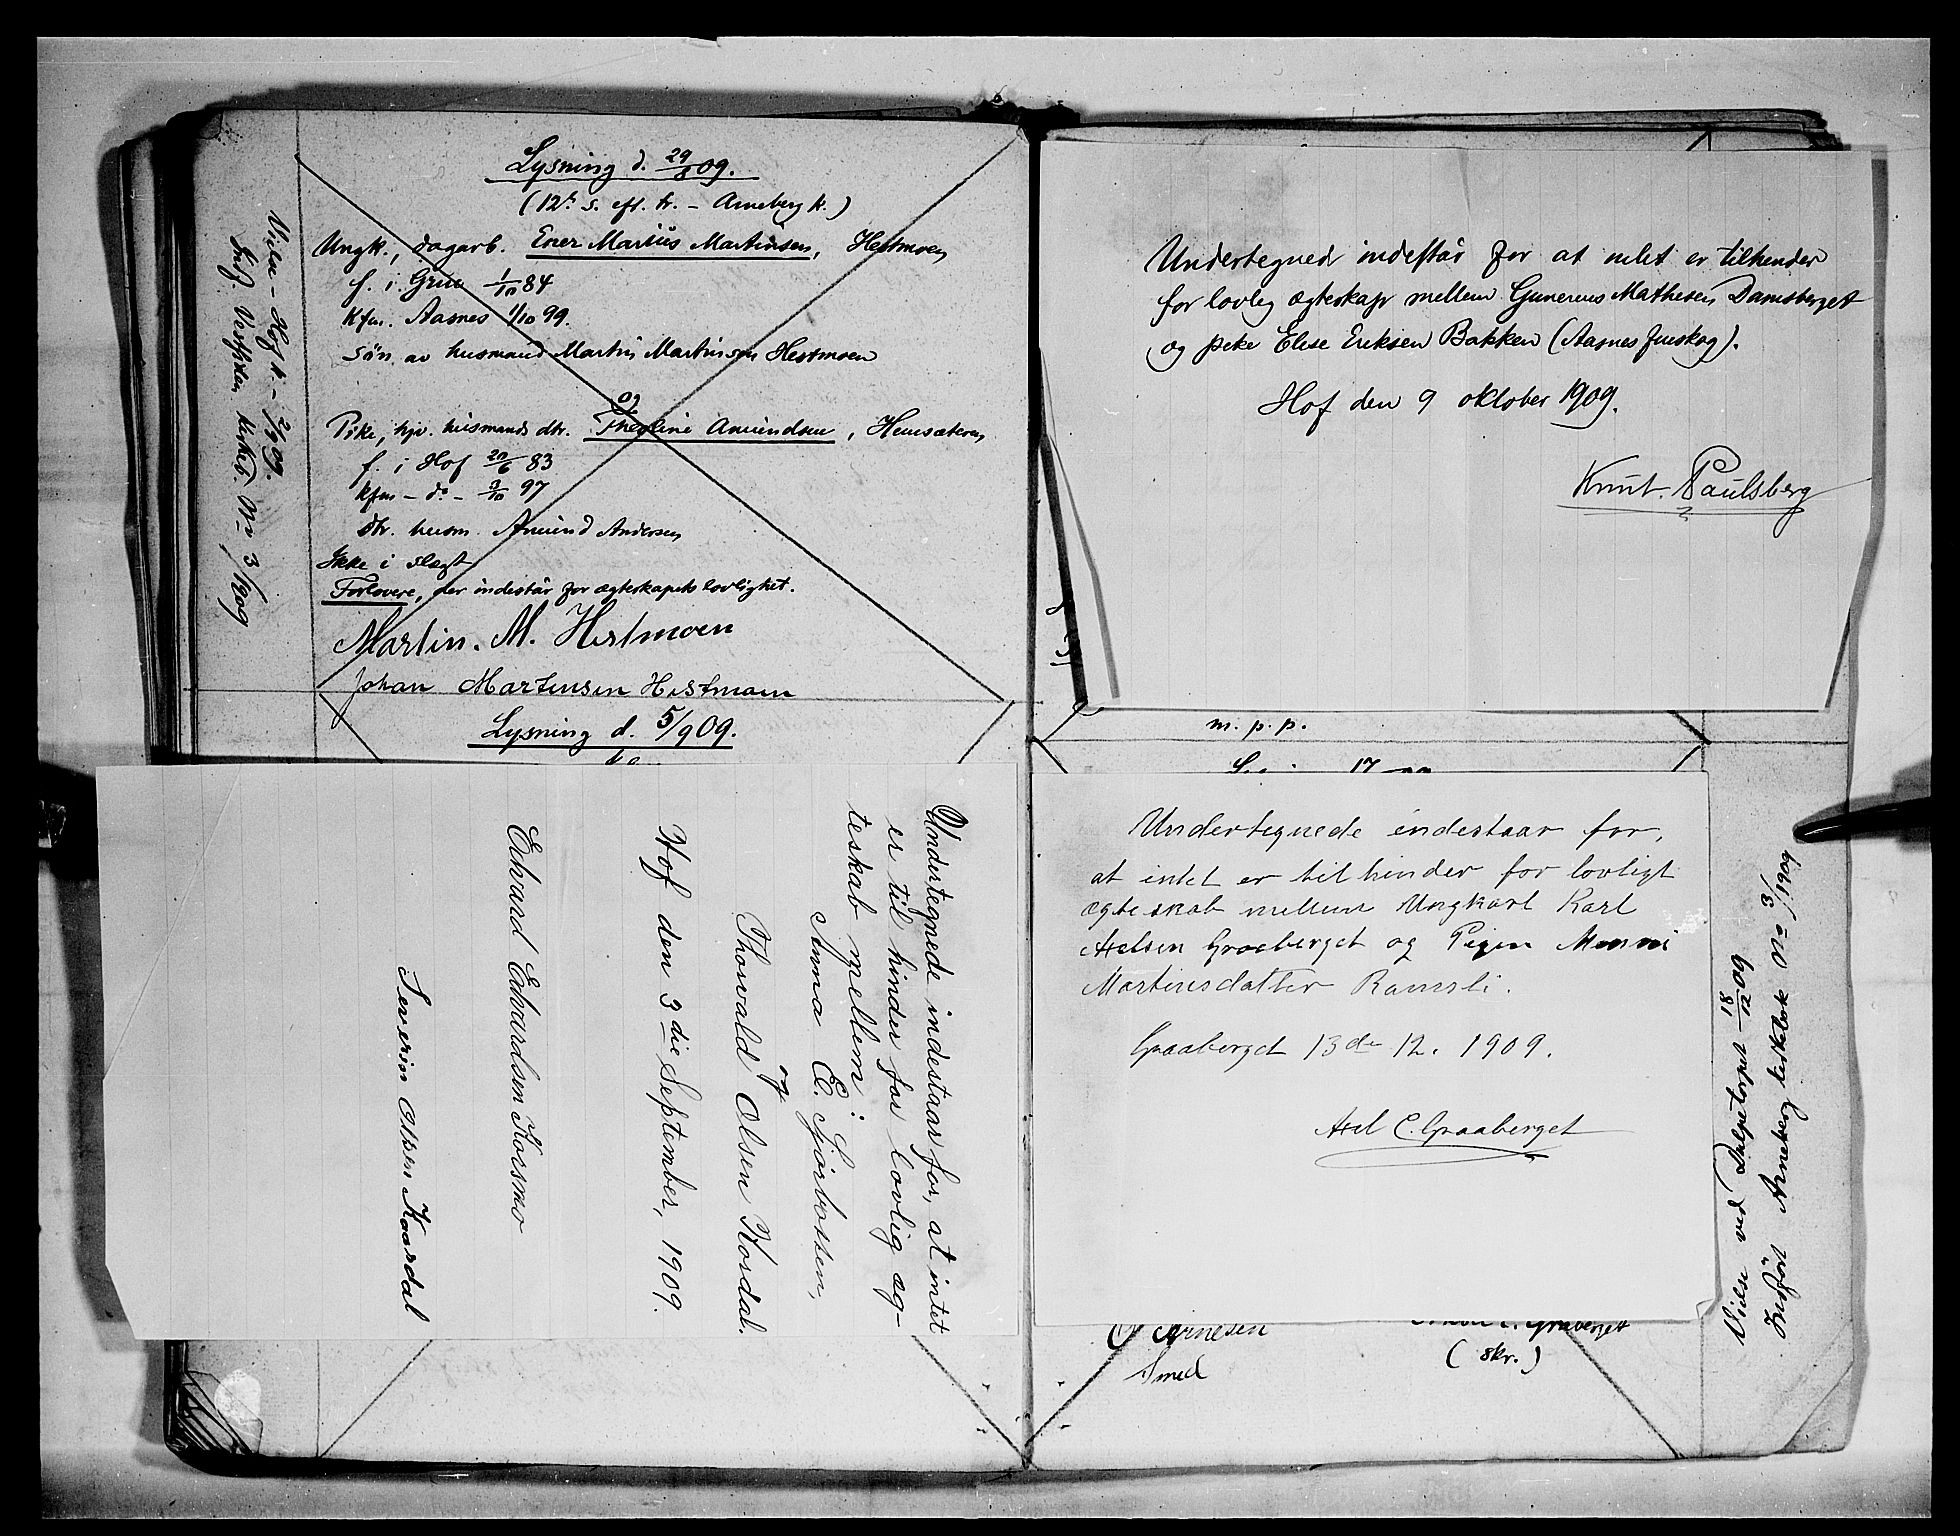 Lysning d. 29/8 09.
(12te s. eft. tr. – Arneberg k.)
Ungk., dagarb. Ener Marius Martinsen, Hestmoen
f. i Grue 1/10 84
Kfm. Aasnes 1/10 99.
Sön av husmand Martin Martinsen Hestmoen
og
Pike, hjv. husmands dtr. Theoline Amundsen, Hemsæteren
f. i Hof 20/6 83
kfm – do – 3/10 97
dtr. husm. Amund Andersen
Ikke i slægt
Forlovere, der indestår for ægteskapets lovlighet.
Martin. M. Hestmoen
Johan Martinsen Hestmoen
Vielse – Hof k. – 2/9 09.
Indf. Vestsiden kirkeb. No 3/1909
Lysning d. 5/9 09.
Undertegnede indestaar for, at intet
er til hinder for lovlig æg-
teskab mellem:
Anna E. Sjörbotten,
og
Thorvald Olsen Kosdal.
Hof den 3die September, 1909.
Edvard Edvardsen Kosmo
Severin Olsen Kaardal
Undertegned indestår for at intet er tilhender
for lovleg ægteskap mellem Gunerius Mathesen Damsberget
og peke Elise Eriksen Bakken (Aasnes finskog).
Hof den 9 oktober 1909.
Knut. Paulsberg
m. p. p.
17
Undertegnede indestaar for,
at intet er til hinder for lovligt
ægteskab mellem Ungkarl Karl
Axelsen Graaberget og Pigen Menni
Martinsdatter Ramsli.
Graaberget 13de 12. 1909.
Axel C. Graaberget
O Arnesen
Smed
Graberget
(skr.)
Vielse ved 18/12 09
Indfört Arneberg kirkebok No 3/1909